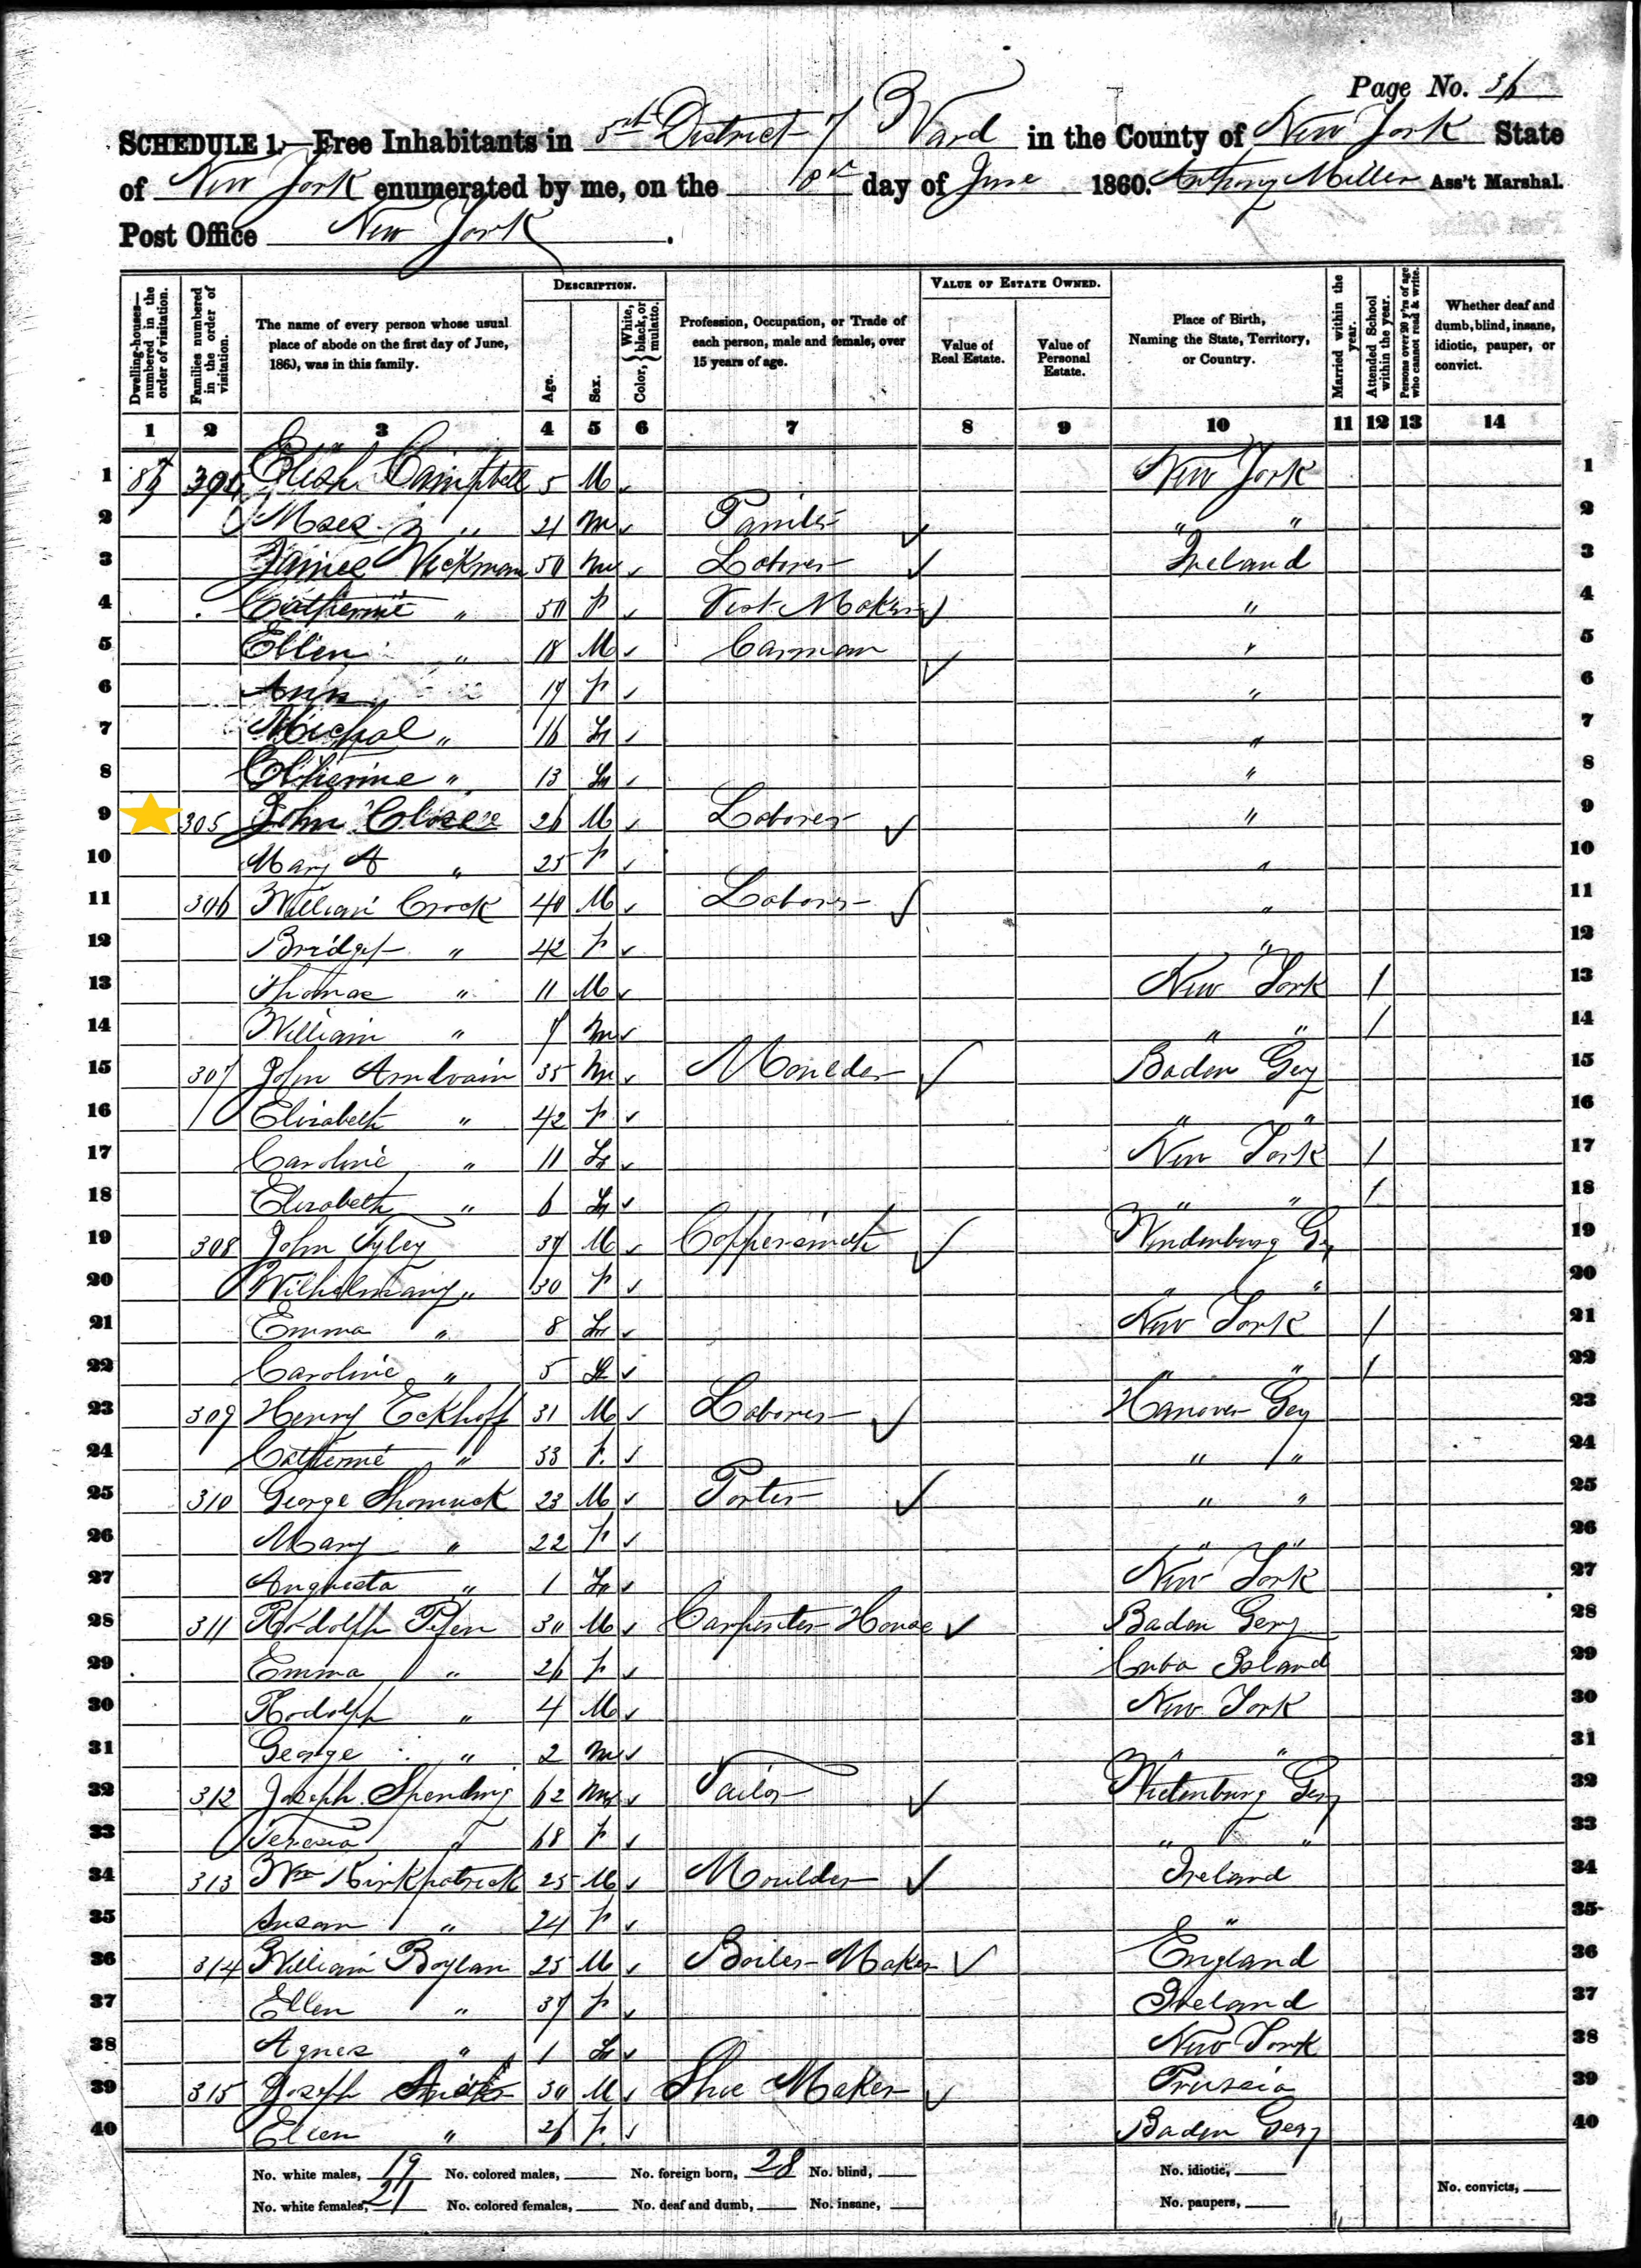 Page No. 36
SCHEDULE 1.—Free Inhabitants in 5th District 7 Ward in the County of New York State
of New York enumerated by me, on the 8th day of June 1860. Anthony Miller Ass't Marshal.
Post Office New York.
Dwelling-houses—numbered in the order of visitation.
Families numbered in the order of visitation.
The name of every person whose usual place of abode on the first day of June, 1860, was in this family.
DESCRIPTION.
Age.
Sex.
Color, { White, black, or mulatto.
Profession, Occupation, or Trade of each person, male and female, over 15 years of age.
VALUE OF ESTATE OWNED.
Value of Real Estate.
Value of Personal Estate.
Place of Birth, Naming the State, Territory, or Country.
Married within the year.
Attended School within the year.
Persons over 20 y'rs of age who cannot read & write.
Whether deaf and dumb, blind, insane, idiotic, pauper, or convict.
1 2 3 4 5 6 7 8 9 10 11 12 13 14
1 Campbell 5 M New York 1
2 Moses " 21 m " " 2
3 James 50 m Laborer Ireland 3
4 Catherine " 50 f Vest Maker " 4
5 Ellen " 18 M Carman " 5
6 Ann " 17 f " 6
7 Michael " 16 " 7
8 Catherine " 13 " 8
9 305 John 26 M Laborer " 9
10 Mary A " 25 f " 10
11 306 William Crock 40 M Laborer " 11
12 Bridget " 42 f " 12
13 Thomas " 11 M New York / 13
14 William " 7 m " " / 14
15 307 John 35 m Moulder Baden Gey 15
16 Elizabeth " 42 f " " 16
17 Caroline " 11 New York / 17
18 Elizabeth " 6 " " / 18
19 308 John 37 M Coppersmith 19
20 " 30 f " " 20
21 Emma " 8 New York / 21
22 Caroline " 5 " " / 22
23 309 Henry Eckhoff 31 M Laborer Hanover Gey 23
24 Catherine " 33 f " " 24
25 310 George 23 M Porter " " 25
26 Mary " 22 f " " 26
27 Augusta " 1 New York 27
28 311 Rodolph 30 M Carpenter House Baden Gery 28
29 Emma " 26 f Cuba Island 29
30 Rodolph " 4 M New York 30
31 George " 2 m " " 31
32 312 Joseph Spending 62 m Tailor 32
33 " 68 f " " 33
34 313 Wm Kirkpatrick 25 M Moulder Ireland 34
35 Susan " 24 f " 35
36 314 William Boylan 25 M Boiler Maker England 36
37 Ellen " 37 f Ireland 37
38 Agnes " 1 New York 38
39 315 Joseph 30 M Shoe Maker Prussia 39
40 Ellen " 26 f Baden Gery 40
No. white males, 19 No. colored males, No. foreign born, 28 No. blind, No. idiotic,
No. white females, 21 No. colored females, No. deaf and dumb, No. insane, No. paupers, No. convicts,